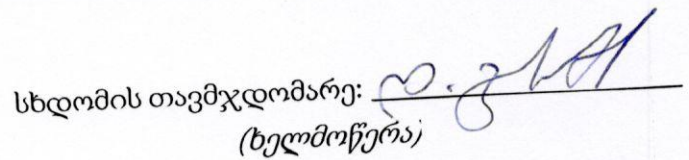 სხდომის თავმჯდომარე:
(ხელმოწერა)